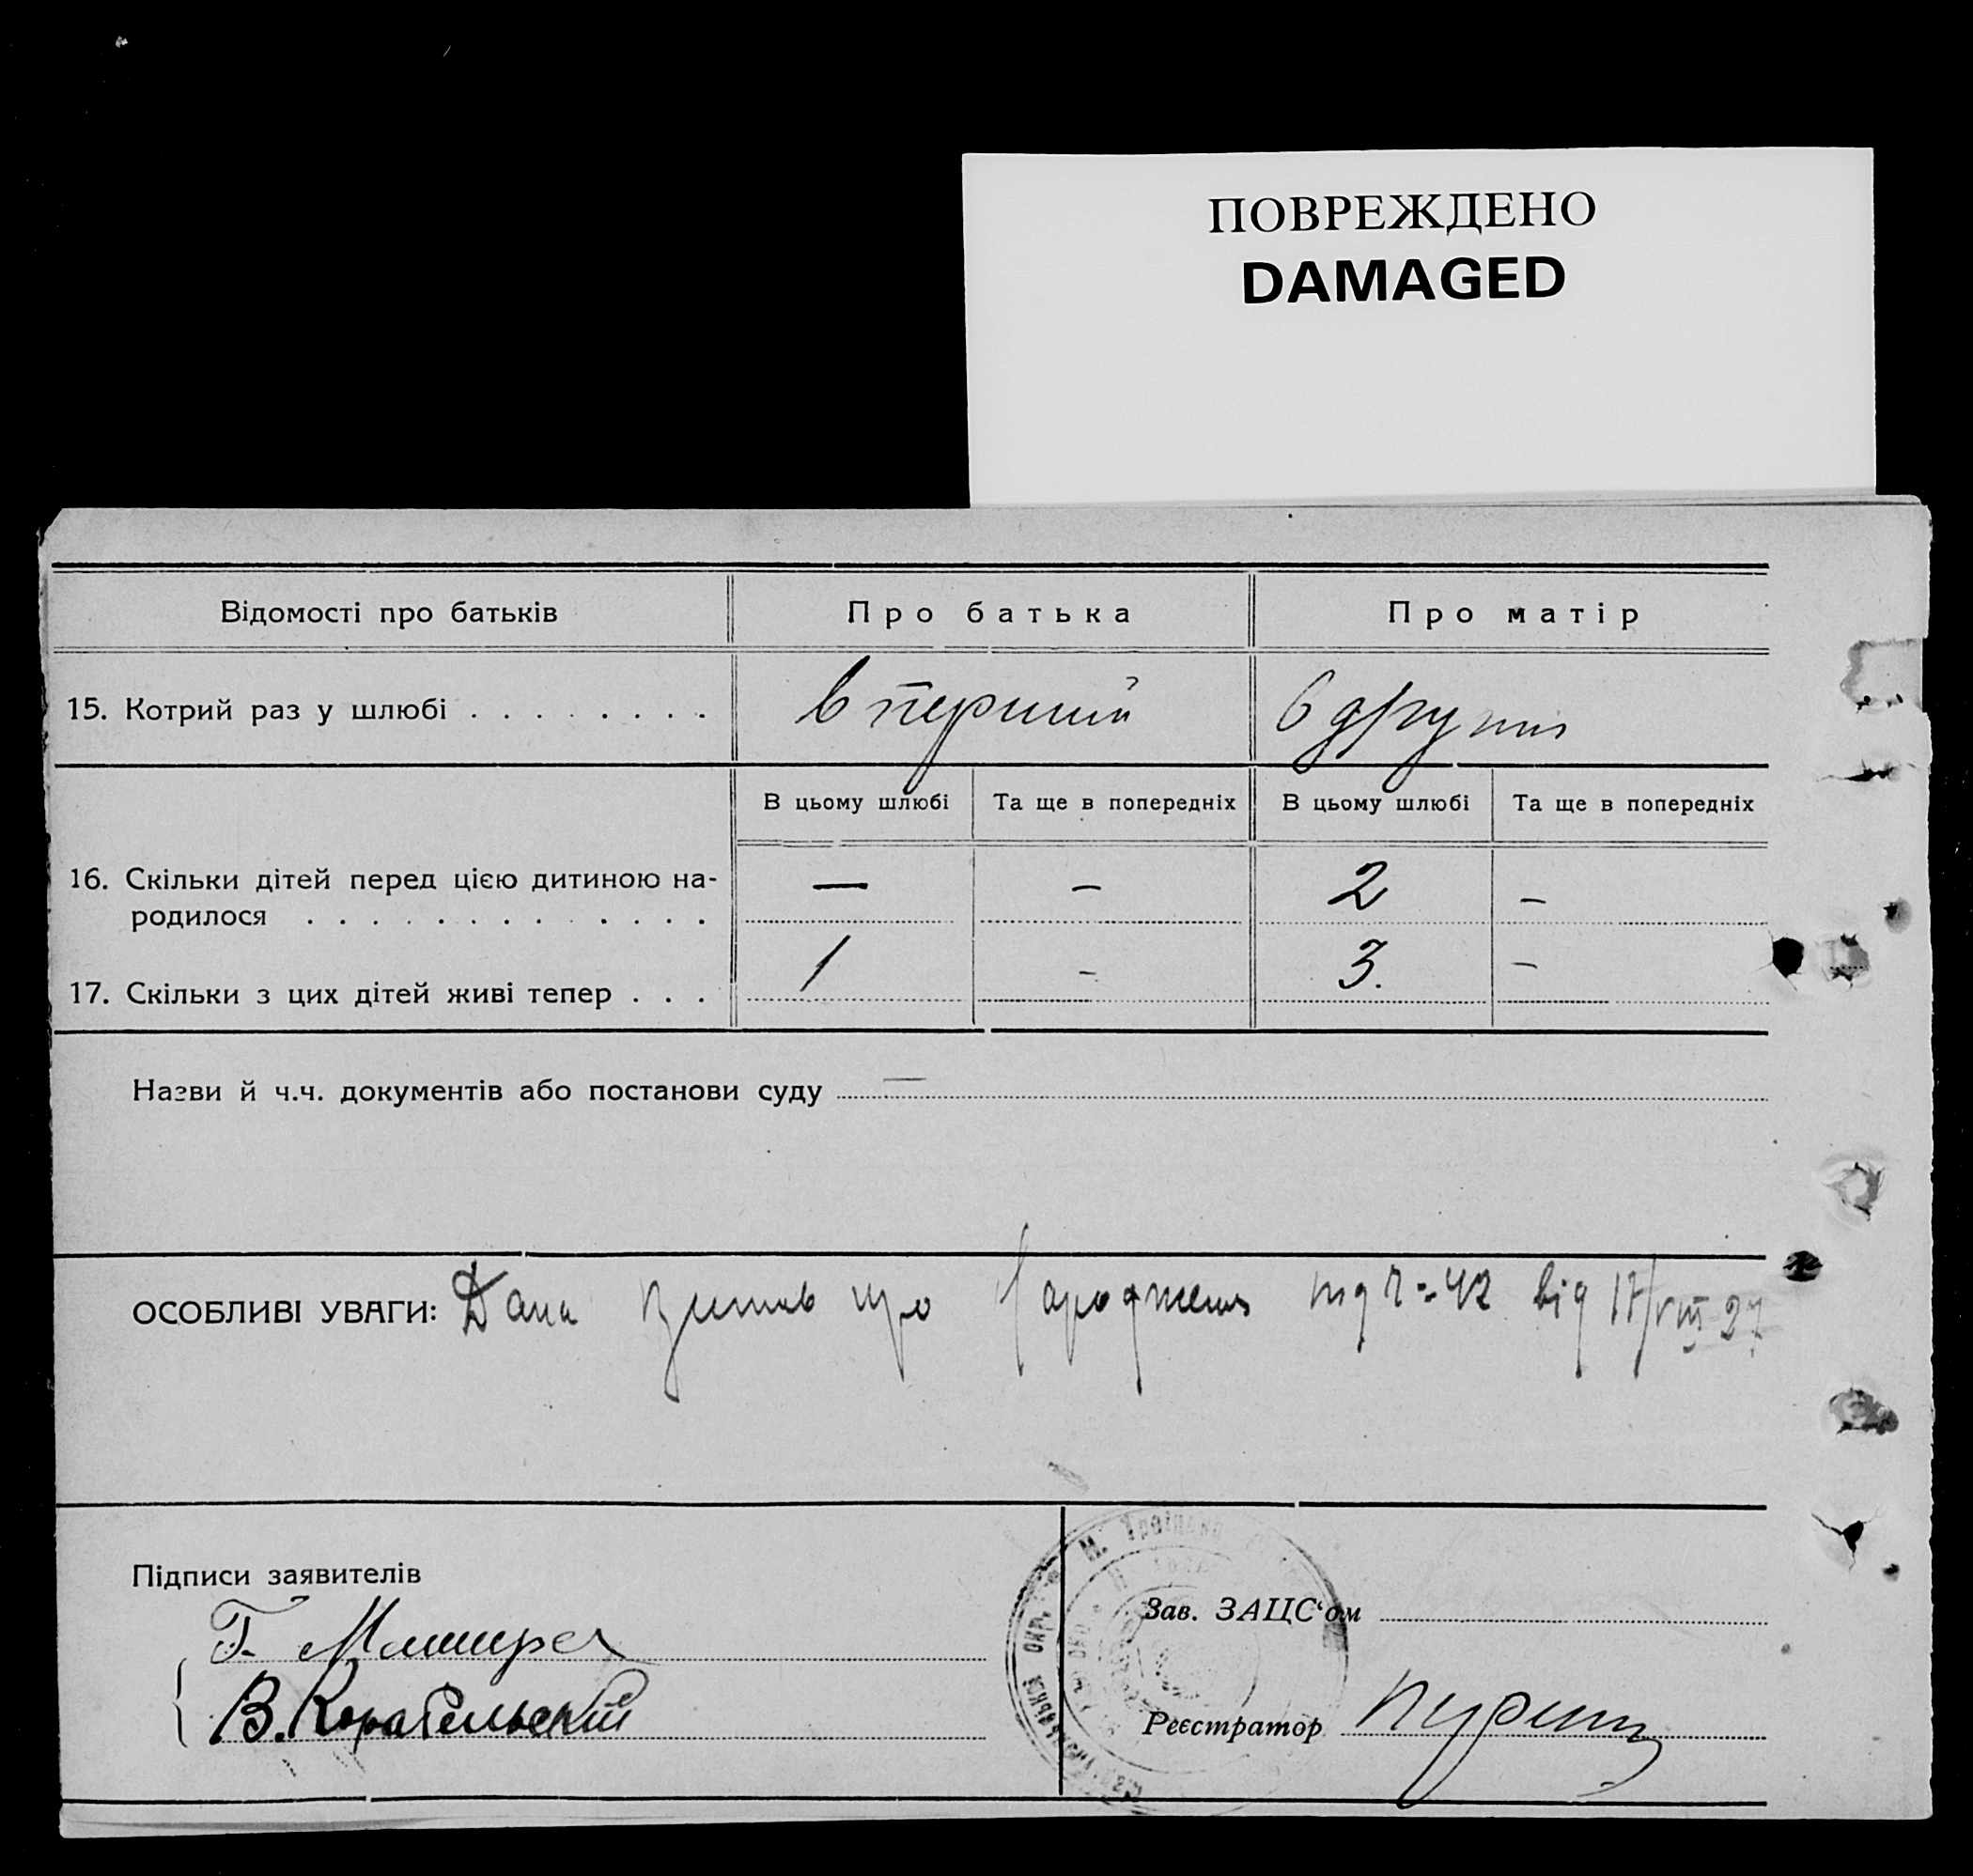 ПОВРЕЖДЕНО
DAMAGED
Відомості про батьків
Про батька
Про матір
15. Котрий раз у шлюбі . . . . . . . .
в перший
в другий
В цьому шлюбі
Та ще в попередніх
В цьому шлюбі
Та ще в попередніх
16. Скільки дітей перед цією дитиною на-
родилося . . . . . . . . . . . . .
—
–
2
–
17. Скільки з цих дітей живі тепер . . .
1
–
3.
–
Назви й ч.ч. документів або постанови суду —
ОСОБЛИВІ УВАГИ: Дана про від 17/VIII 27
Підписи заявителів
В. Корабельский
Зав. ЗАЦС‘ом
Реєстратор